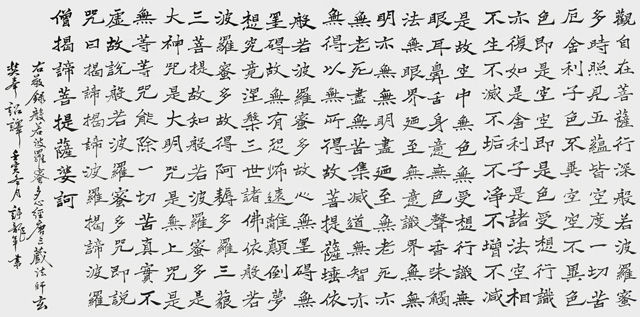 觀自在菩薩行深般若波羅蜜
多時照見五蘊皆空度一切苦
厄舍利子色不異空空不異色
色即是空空即是色受想行識
亦復如是舍利子是諸法空相
不生不滅不垢不淨不增不減
是故空中無色無受想行識無
眼耳鼻舌身意無色聲香味觸
法無眼界廼至無意識界無無
明亦無無明盡廼至無老死亦
無老死盡無苦集滅道無智亦
無得以無所得故菩提薩埵依
般若波羅蜜多故心無罣礙無
罣礙故無有恐怖遠離顛倒夢
想究竟涅槃三世諸佛依般若
波羅蜜多故得阿耨多羅三藐
三菩提故知般若波羅蜜多是
大神咒是大明咒是無上咒是
無等等咒能除一切苦真實不
虛故說般若波羅蜜多咒即說
咒曰揭諦揭諦波羅揭諦波羅
僧揭諦菩提薩婆訶
右敬錄般若波羅蜜多心經唐三藏法師玄
奘奉詔譯 壬寅月 許龍年書